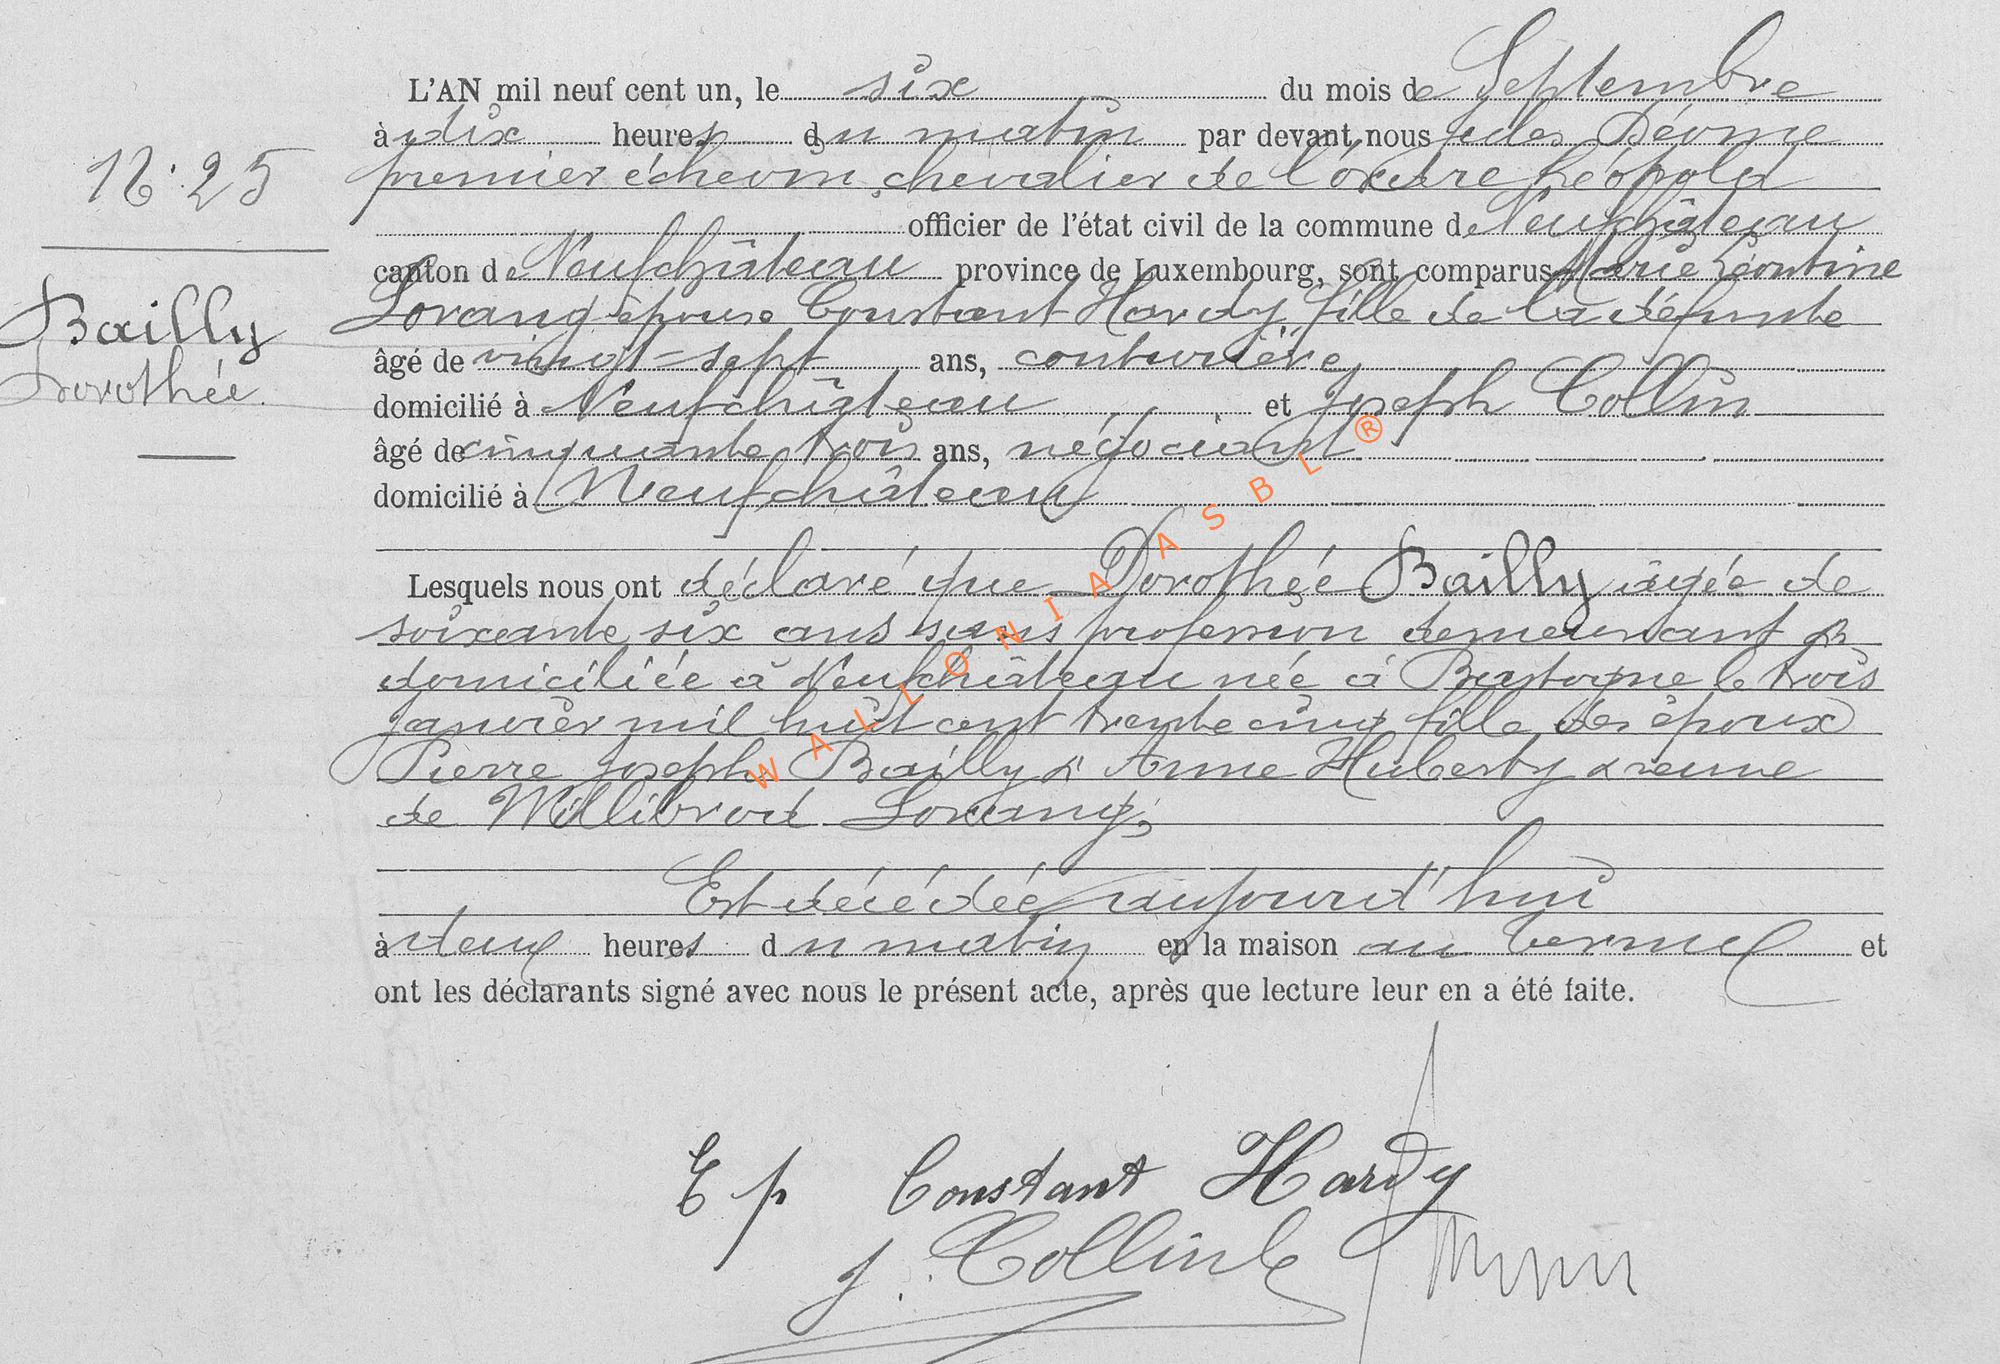 L'AN mil neuf cent un, le six du mois de Septembre
à dix heures du matin par devant nous Jules Déome
premier échevin, chevalier de l'ordre Léopold
officier de l'état civil de la commune de Neufchâteau
canton de Neufchâteau province de Luxembourg, sont comparus Marie Léontine
Lorang épouse Constant Hardy, fille de la défunte
âgé de vingt-sept ans, couturière
domicilié à Neufchâteau et Joseph Collin
âgé de cinquante trois ans, négociant
domicilié à Neufchâteau
Lesquels nous ont déclaré que Dorothée Bailly âgée de
soixante six ans sans profession demeurant &
domiciliée à Neufchâteau née à Bastogne le trois
janvier mil huit cent trente cinq fille des époux
Pierre Joseph Bailly & Anne Huberty & veuve
de Willibrod Lorang,
Est décédée aujourd'hui
à deux heures du matin en la maison au Terme et
ont les déclarants signé avec nous le présent acte, après que lecture leur en a été faite.
25
Bailly
Dorothée.
WALLONIA ASBL®
Ep Constant Hardy
J. Collin